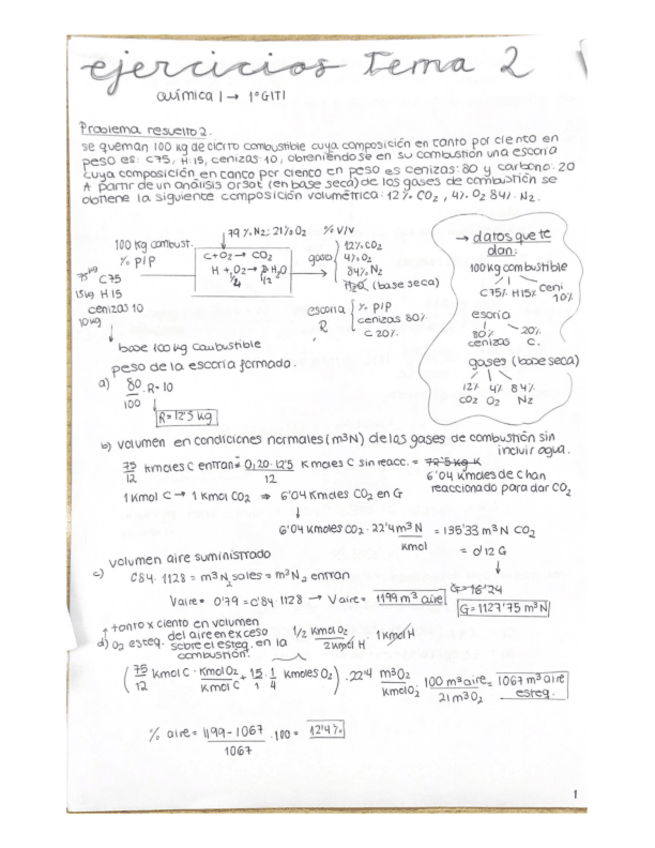 ejercicios tema 2
química I → 1º GITI
Problema resuelto 2.
se queman 100 kg de cierto combustible cuya composición en tanto por ciento en
peso es: C75, H:15, cenizas:10, obteniéndose en su combustión una escoria
cuya composición en tanto por ciento en peso es cenizas:80 y carbono:20
A partir de un análisis orsat (en base seca) de los gases de combustión se
obtiene la siguiente composición volumétrica: 12% CO2, 4% O2 84% N2.
79% N2; 21% O2 % V/V
100 kg combust.
% P/P
75kg C75
15kg H15
cenizas 10
10kg
C+O2 → CO2
gases
12% CO2
4% O2
84% N2
H2O (base seca)
escoria
R
% P/P
cenizas 80%
C 20%
→ datos que te
dan:
100 kg combustible
C75% H15% Ceni
10%
escoria
80% 20%
cenizas C.
gases (base seca)
12% 4% 84%
CO2 O2 N2
base 100 kg combustible
peso de la escoria formada.
a) 80/100 · R = 10
R = 12'5 kg
b) volumen en condiciones normales (m³N) de los gases de combustión sin
incluir agua.
75/12 kmoles C entran = 0,20 · 12'5/12 Kmoles C sin reacc. =
6'04 Kmoles de C han
reaccionado para dar CO2
1 Kmol C → 1 Kmol CO2 ⇒ 6'04 Kmoles CO2 en G
6'04 Kmoles CO2 · 22'4 m³N/Kmol = 135'33 m³N CO2
= 0'12 G
G = 1127'75 m³N
volumen aire suministrado
c) 084 · 1128 = m³N2 sales = m³N2 entran
Vaire · 0'79 = 0'84 · 1128 → Vaire = 1199 m³ aire
tanto x ciento en volumen
del aire en exceso
d) O2 esteq. sobre el esteq. en la
combustión.
1/2 Kmol O2/2 Kmol H · 1 Kmol H
(75/12 Kmol C · Kmol O2/Kmol C + 15/1 · 1/4 Kmoles O2) · 22'4 m³O2/Kmol O2 · 100 m³ aire/21 m³O2 = 1067 m³ aire
esteq.
% aire = 1199 - 1067/1067 · 100 = 12'4%
1